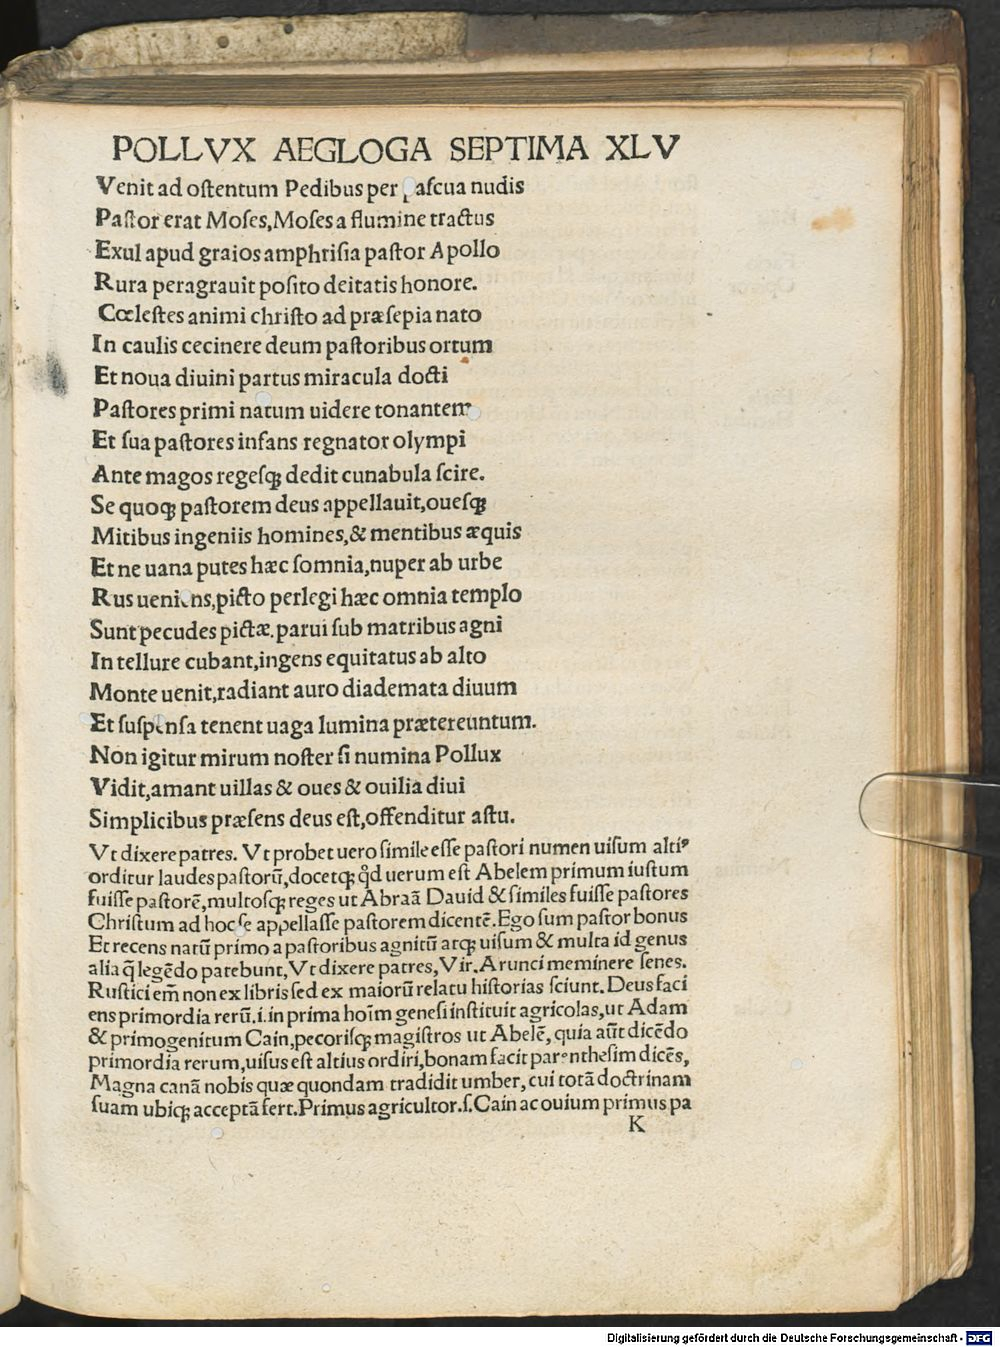 POLLVX AEGLOGA SEPTIMA XLV
Venit ad oſtentum Pedibus per paſcua nudis
Paſtor erat Moſes,Moſes a flumine tractus
Exul apud graios amphriſia paſtor Apollo
Rura peragrauit poſito deitatis honore.
Cœleſtes animi chriſto ad præſepia nato
In caulis cecinere deum paſtoribus ortum
Et noua diuini partus miracula docti
Paſtores primi natum uidere tonantem
Et ſua paſtores infans regnator olympi
Ante magos regeſqꝫ dedit cunabula ſcire.
Se quoqꝫ paſtorem deus appellauit,oueſqꝫ
Mitibus ingeniis homines,& mentibus æquis
Et ne uana putes hæc ſomnia,nuper ab urbe
Rus ueniens,picto perlegi hæc omnia templo
Sunt pecudes pictæ.parui ſub matribus agni
In tellure cubant,ingens equitatus ab alto
Monte uenit,radiant auro diademata diuum
Et ſuſpenſa tenent uaga lumina prætereuntum.
Non igitur mirum noſter ſi numina Pollux
Vidit,amant uillas & oues & ouilia diui
Simplicibus præſens deus eſt,offenditur aſtu.
Vt dixere patres. Vt probet uero ſimile eſſe paſtori numen uiſum altiꝰ
orditur laudes paſtorū,docetqꝫ qd̓ uerum eſt Abelem primum iuſtum
fuiſſe paſtorē,multoſqꝫ reges ut Abraā Dauid & ſimiles fuiſſe paſtores
Chriſtum ad hoc ſe appellaſſe paſtorem dicentē.Ego ſum paſtor bonus
Et recens natū primo a paſtoribus agnitū atqꝫ uiſum & multa id genus
alia q̄ legēdo patebunt,Vt dixere patres,Vir.Arunci meminere ſenes.
Ruſtici em̄ non ex libris ſed ex maiorū relatu hiſtorias ſciunt.Deus faci
ens primordia rerū.i.in prima hoīm geneſi inſtituit agricolas,ut Adam
& primogenitum Cain,pecoriſqꝫ magiſtros ut Abelē, quia aūt dicēdo
primordia rerum,uiſus eſt altius ordiri,bonam facit parentheſim dicēs,
Magna canā nobis quæ quondam tradidit umber, cui totā doctrinam
ſuam ubiqꝫ acceptā fert.Primus agricultor.ſ.Cain ac ouium primus pa
K
Digitalisierung gefördert durch die Deutsche Forschungsgemeinschaft - DFG